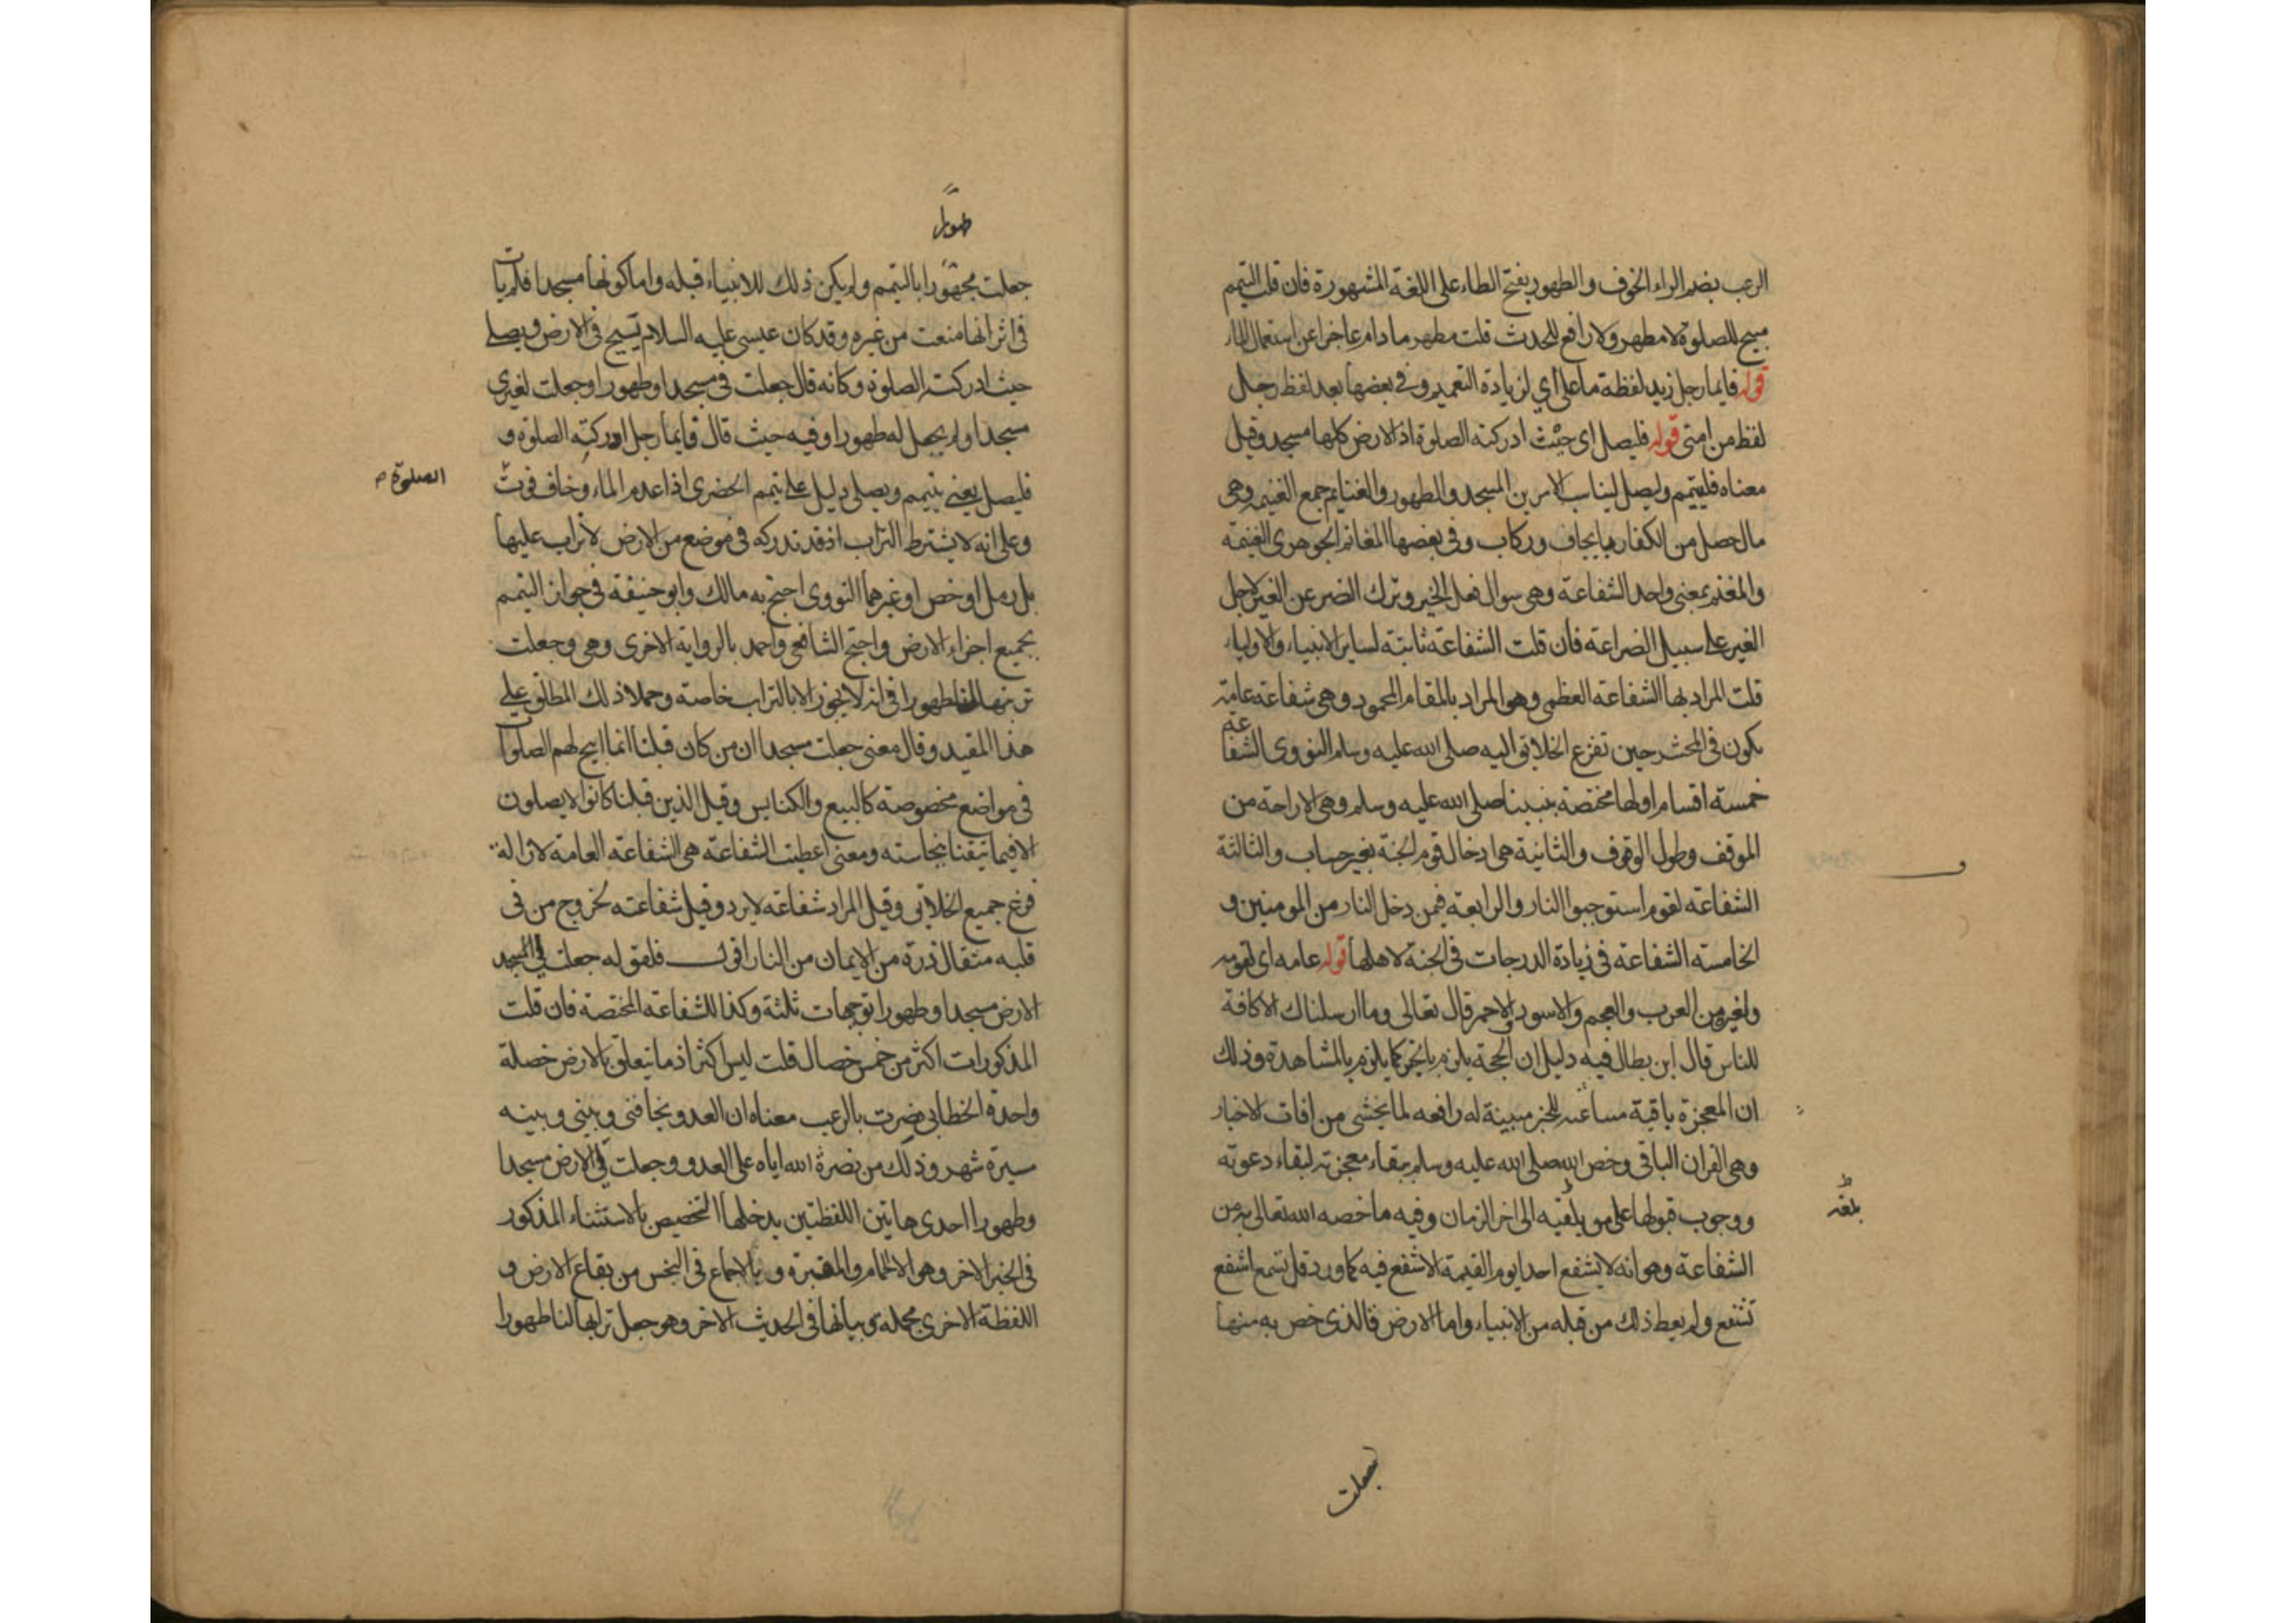 الرعب بضم الراء الخوف والطهور بفتح الطاء على اللغة المشهورة فان قلت التيمم
مبيح للصلوة لا مطهر ولا رافع للحدث قلت مطهر ما دام عاجزا عن استعمال الماء
قوله فايما رجل زيد لفظة ما على اي لزيادة التعميم وفي بعضها بعد لفظ رجل
لفظ من امتي قوله فليصل اي حيث ادركته الصلوة اذ الارض كلها مسجد وقيل
معناه فليتيمم وليصل ليناسب الامرين المسجد والطهور والغنايم جمع الغنيمة وهي
مال حصل من الكفار بايجاف وركاب وفي بعضها المغانم الجوهري الغنيمة
والمغنم بمعنى واحد الشفاعة وهي سوال فعل الخير وترك الضر عن الغير لاجل
الغير على سبيل الضراعة فان قلت الشفاعة ثابتة لساير الانبياء والاولياء
قلت المراد بها الشفاعة العظمى وهو المراد بالمقام المحمود وهي شفاعة عامة
يكون في المحشر حين تفزع الخلايق اليه صلى الله عليه وسلم النووي الشفاعة
خمسة اقسام اولها مختصة بنبينا صلى الله عليه وسلم وهي الاراحة من
الموقف وطول الوقوف والثانية هي ادخال قوم الجنة بغير حساب والثالثة
الشفاعة لقوم استوجبوا النار والرابعة فيمن دخل النار من المومنين و
الخامسة الشفاعة في زيادة الدرجات في الجنة لاهلها قوله عامه اي لقومه
ولغيرهم من العرب والعجم والاسود والاحمر قال تعالى وما ارسلناك الا كافة
للناس قال ابن بطال فيه دليل ان الحجة يلزم بالخبر كما يلزم بالمشاهدة وذلك
ان المعجزة باقية للخبر مبينة له رافعه لما يخشى من افات الاخبار
وهي القران الباقي وخص الله صلى الله عليه وسلم ببقاء معجزته لبقاء دعوته
ووجوب قبولها على من بلغه الى اخر الزمان وفيه ما خصه الله تعالى به من
الشفاعة وهو انه لا يشفع احد يوم القيمة الا شفع فيه كما ورد قل تسمع اشفع
تشفع ولم يعط ذلك من قبله من الانبياء واما الارض فالذي خص به منها
بلغه
جعلت
طهورا
جعلت طهورا بالتيمم ولم يكن ذلك للانبياء قبله واما كونها مسجدا فلم يات
في اثر انها منعت من غيره وقد كان عيسى عليه السلام يسيح في الارض ويصلي
حيث ادركته الصلوة وكانه قال جعلت لي مسجدا وطهورا وجعلت لغيري
مسجدا ولم يجعل له طهورا وفيه حيث قال فايما رجل ادركته الصلوة و
فليصل يعني يتيمم ويصلي دليل على تيمم الحضري اذا عدم الماء وخاف فوت
الصلوة
وعلى انه لا يشترط التراب اذ قد تدركه في موضع من الارض لا تراب عليها
بل رمل او جص او غيرهما النووي احتج به مالك وابو حنيفة في جواز التيمم
بجميع اجزاء الارض واحتج الشافعي واحمد بالرواية الاخرى وهي وجعلت
تربتها لنا طهورا في انه لا يجوز الا بالتراب خاصة وحملا ذلك المطلق على
هذا المقيد وقال معنى جعلت مسجدا ان من كان قبلنا انما ابيح لهم الصلوات
في مواضع مخصوصة كالبيع والكنايس وقيل الذين قبلنا كانوا لا يصلون
الا فيما تيقنا نجاسته ومعنى اعطيت الشفاعة هي الشفاعة العامة لازالة
فزع جميع الخلايق وقيل المراد شفاعة لا يرد وقيل شفاعته بخروج من في
قلبه مثقال ذرة من الايمان من النار اقول فلقوله جعلت لي
الارض مسجدا وطهورا توجيهات ثلثة وكذا للشفاعة المختصة فان قلت
المذكورات اكثر من خمس خصال قلت ليس اكثر اذ ما يتعلق بالارض خصلة
واحدة الخطابي نصرت بالرعب معناه ان العدو يخافني وبيني وبينه
مسيرة شهر وذلك من نصرة الله اياه على العدو وجعلت لي الارض مسجدا
وطهورا احدى هاتين اللفظتين يدخلها التخصيص بالاستثناء المذكور
في الخبر الاخر وهو الا الحمام والمقبرة وبالاجماع في النجس من بقاع الارض و
اللفظة الاخرى مجملة وبيانها في الحديث الاخر وهو جعل ترابها لنا طهورا